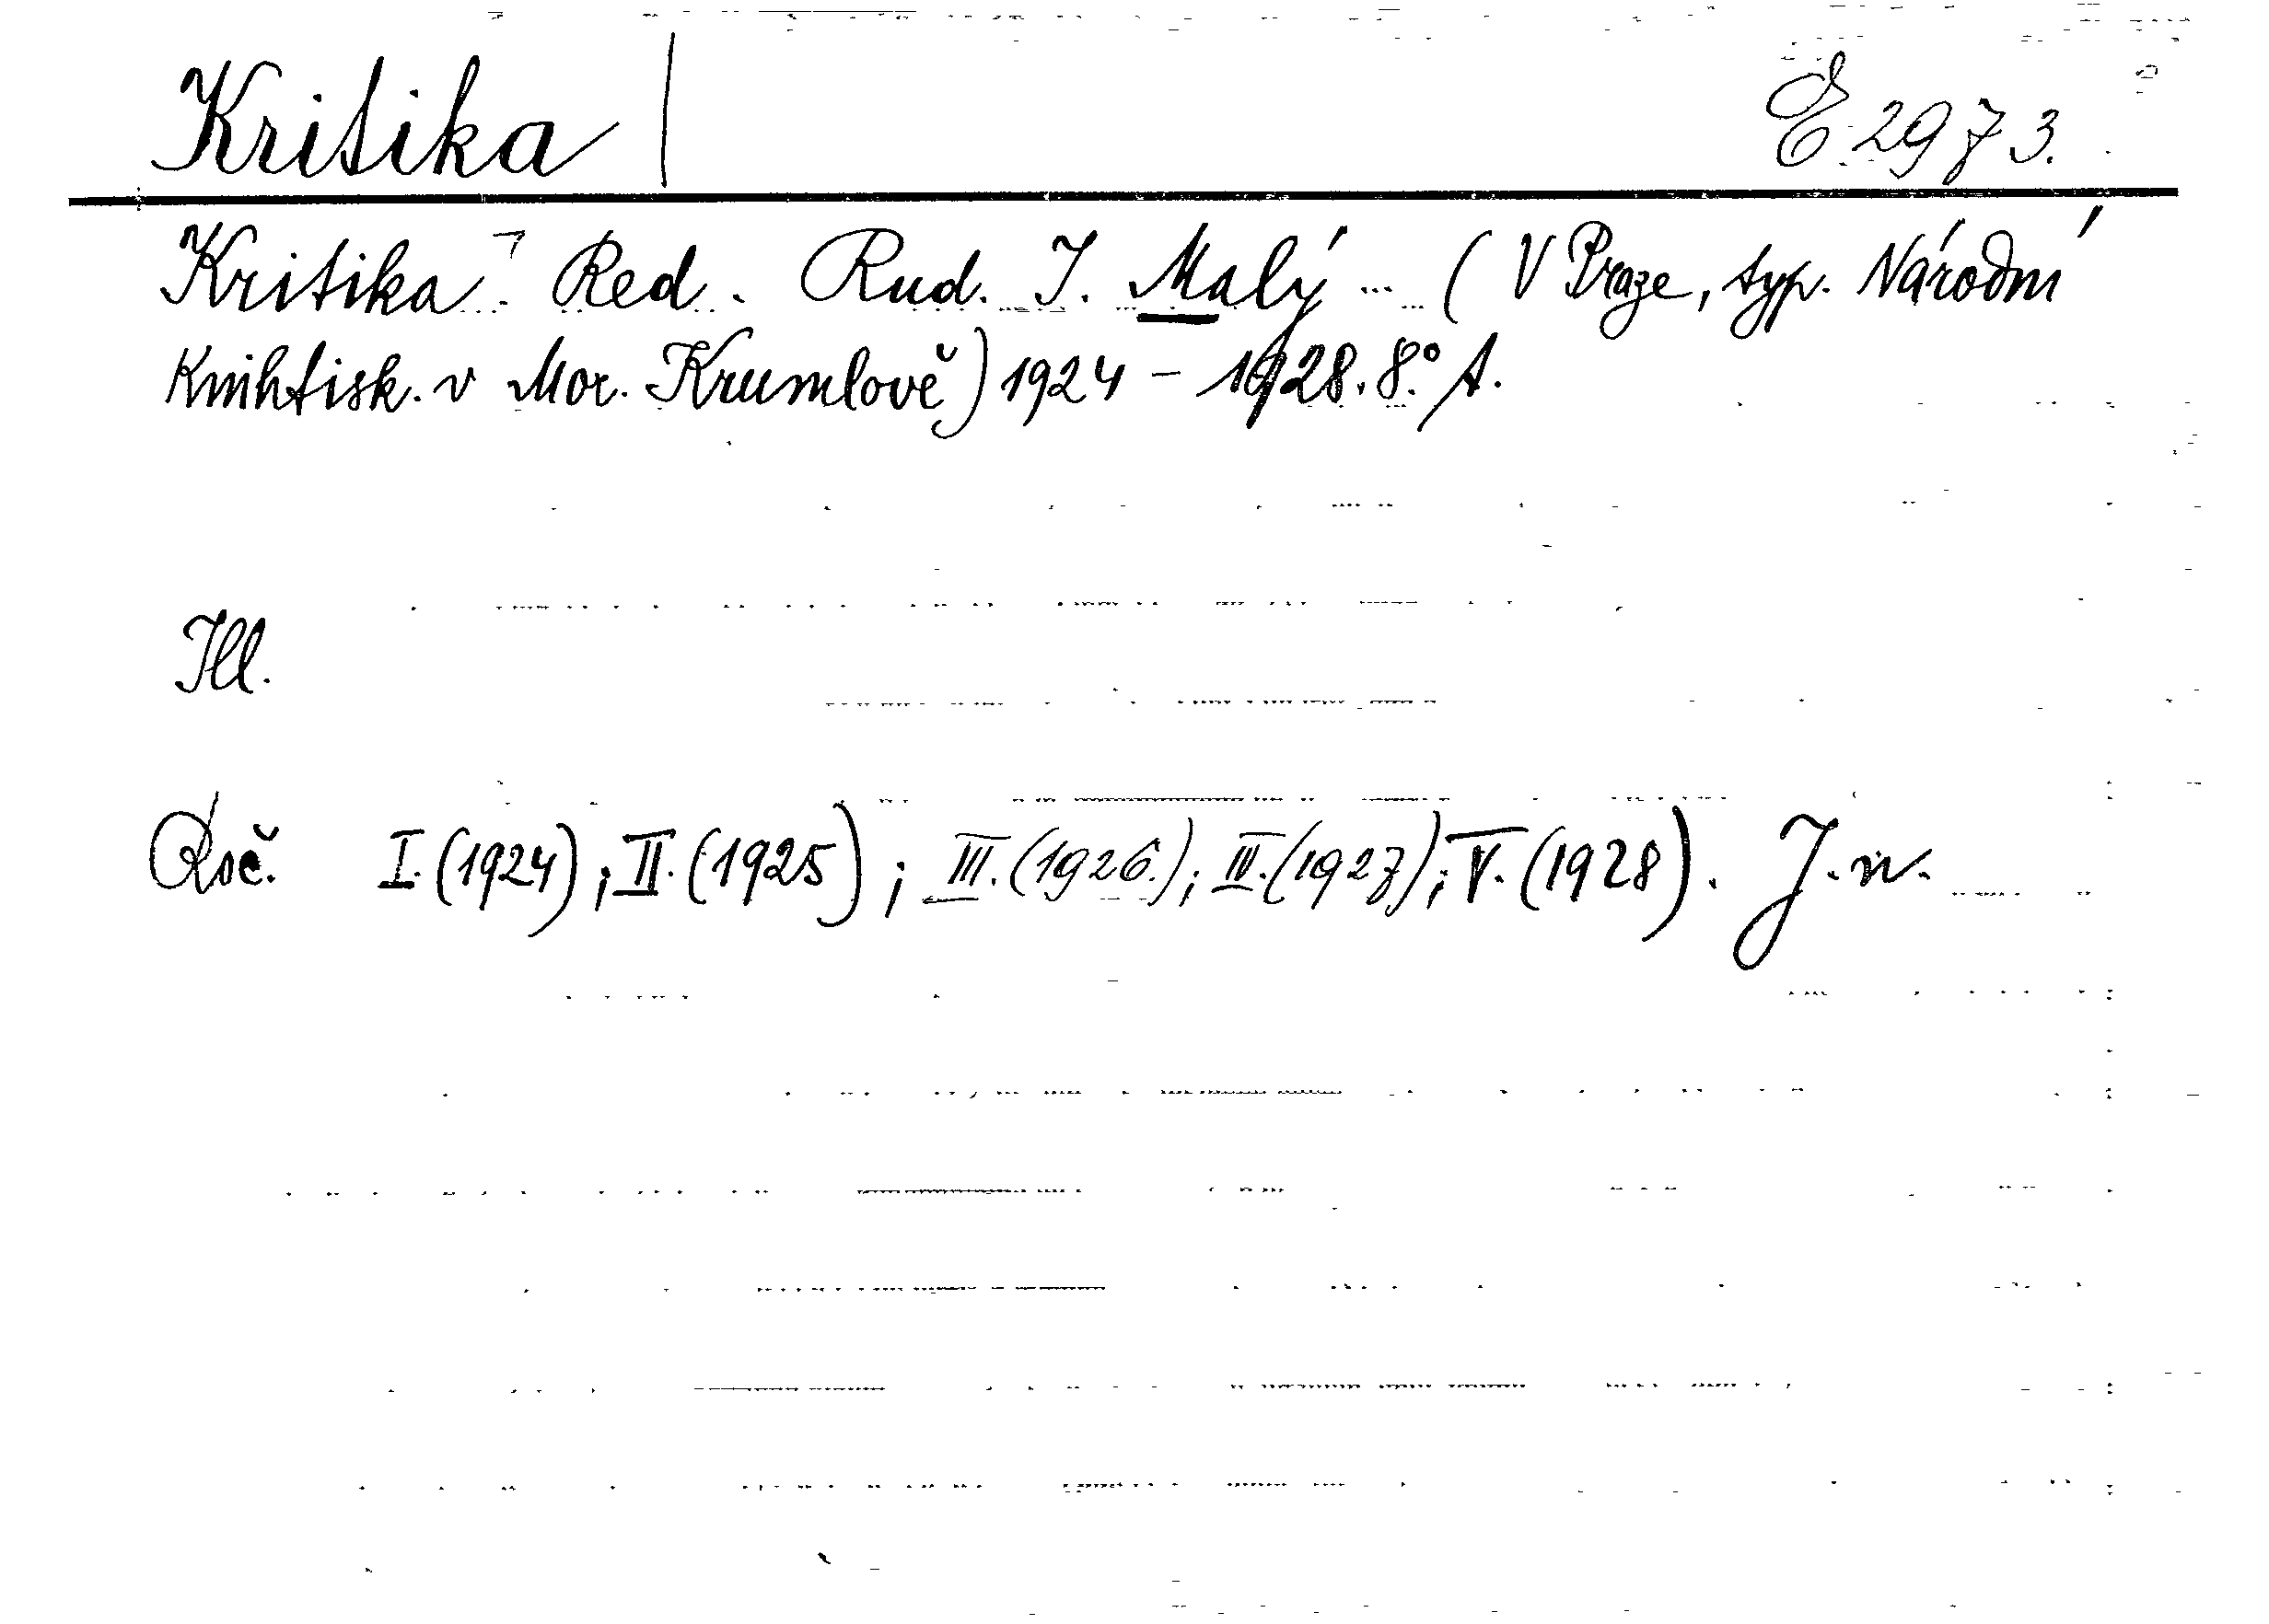 Kritika | E 2973.
Kritika. Red. Rud. I. Malý ... (V Praze, typ. Národní
Knihtisk. v Mor. Krumlově) 1924 - 1928. 8.° A.
Ill.
Roč. I. (1924); II. (1925); III. (1926.); IV. (1927); V. (1928). J. n.